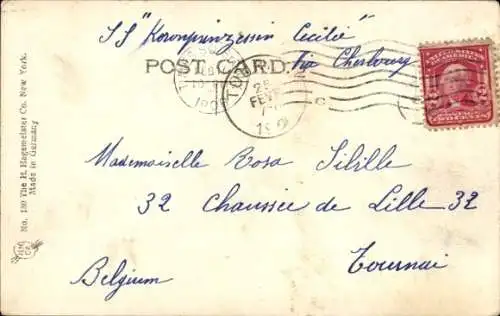 SS "Kronprinzessin Cecilie"
via Cherbourg
POST CARD.
TOU
25
FEV
Mademoiselle Rosa Sibille
32 Chaussée de Lille 32
Tournai
Belgium
No. 130 The H. Hagemeister Co. New York.
Made in Germany